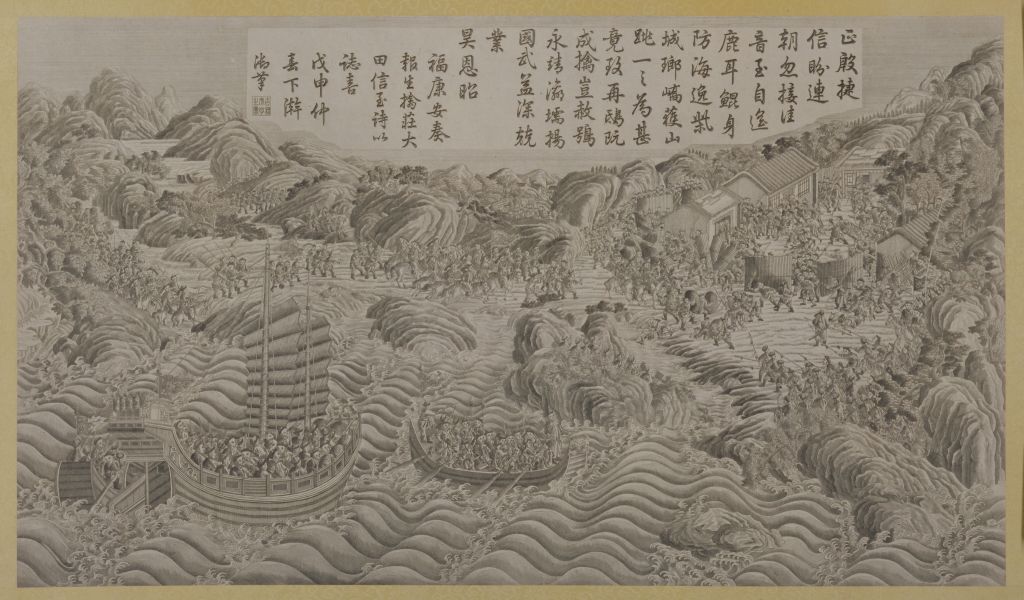 正殷捷
信盼連
朝忽接佳
音至自遙
鹿耳鯤身
防海逸柴
城瑯嶠薙山
跳一之為甚
竟致再鴟既
成擒豈赦鴞
永靖瀛壖揚
國武益深兢
業
昊恩昭
福康安奏
報生擒莊大
田信至詩以
誌喜
戊申仲
春下澣
御筆